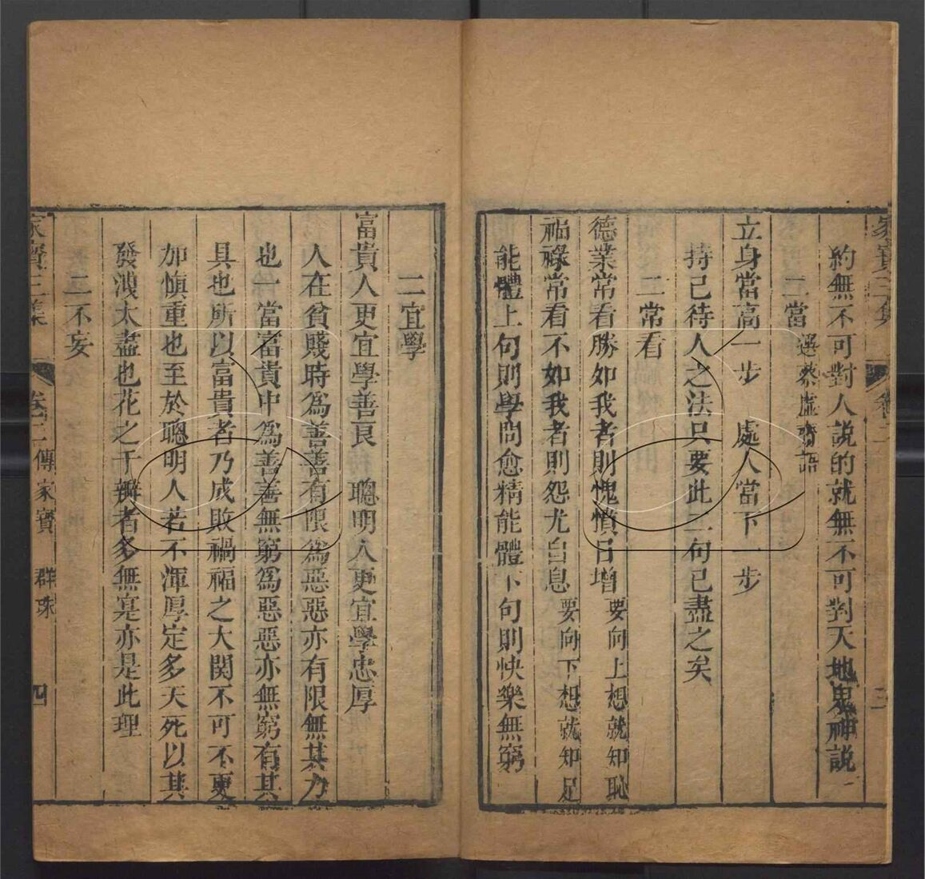 家寶三集 卷二 三
約無不可對人說的就無不可對天地鬼神說
二當 選蔡虛齋語
立身當高一步 處人當下一步
持己待人之法只要此二句已盡之矣
二常看
德業常看勝如我者則愧憤日增 要向上想就知恥
福祿常看不如我者則怨尤自息 要向下想就知足
能體上句則學問愈精能體下句則快樂無窮
二宜學
富貴人更宜學善良 聰明人更宜學忠厚
人在貧賤時爲善善有限爲惡惡亦有限無其力
也一當富貴中爲善善無窮爲惡惡亦無窮有其
具也所以富貴者乃成敗禍福之大関不可不更
加慎重也至於聰明人若不渾厚定多夭死以其
發洩太盡也花之千瓣者多無寔亦是此理
二不妄
家寶三集 卷二 傳家寶 群珠 四